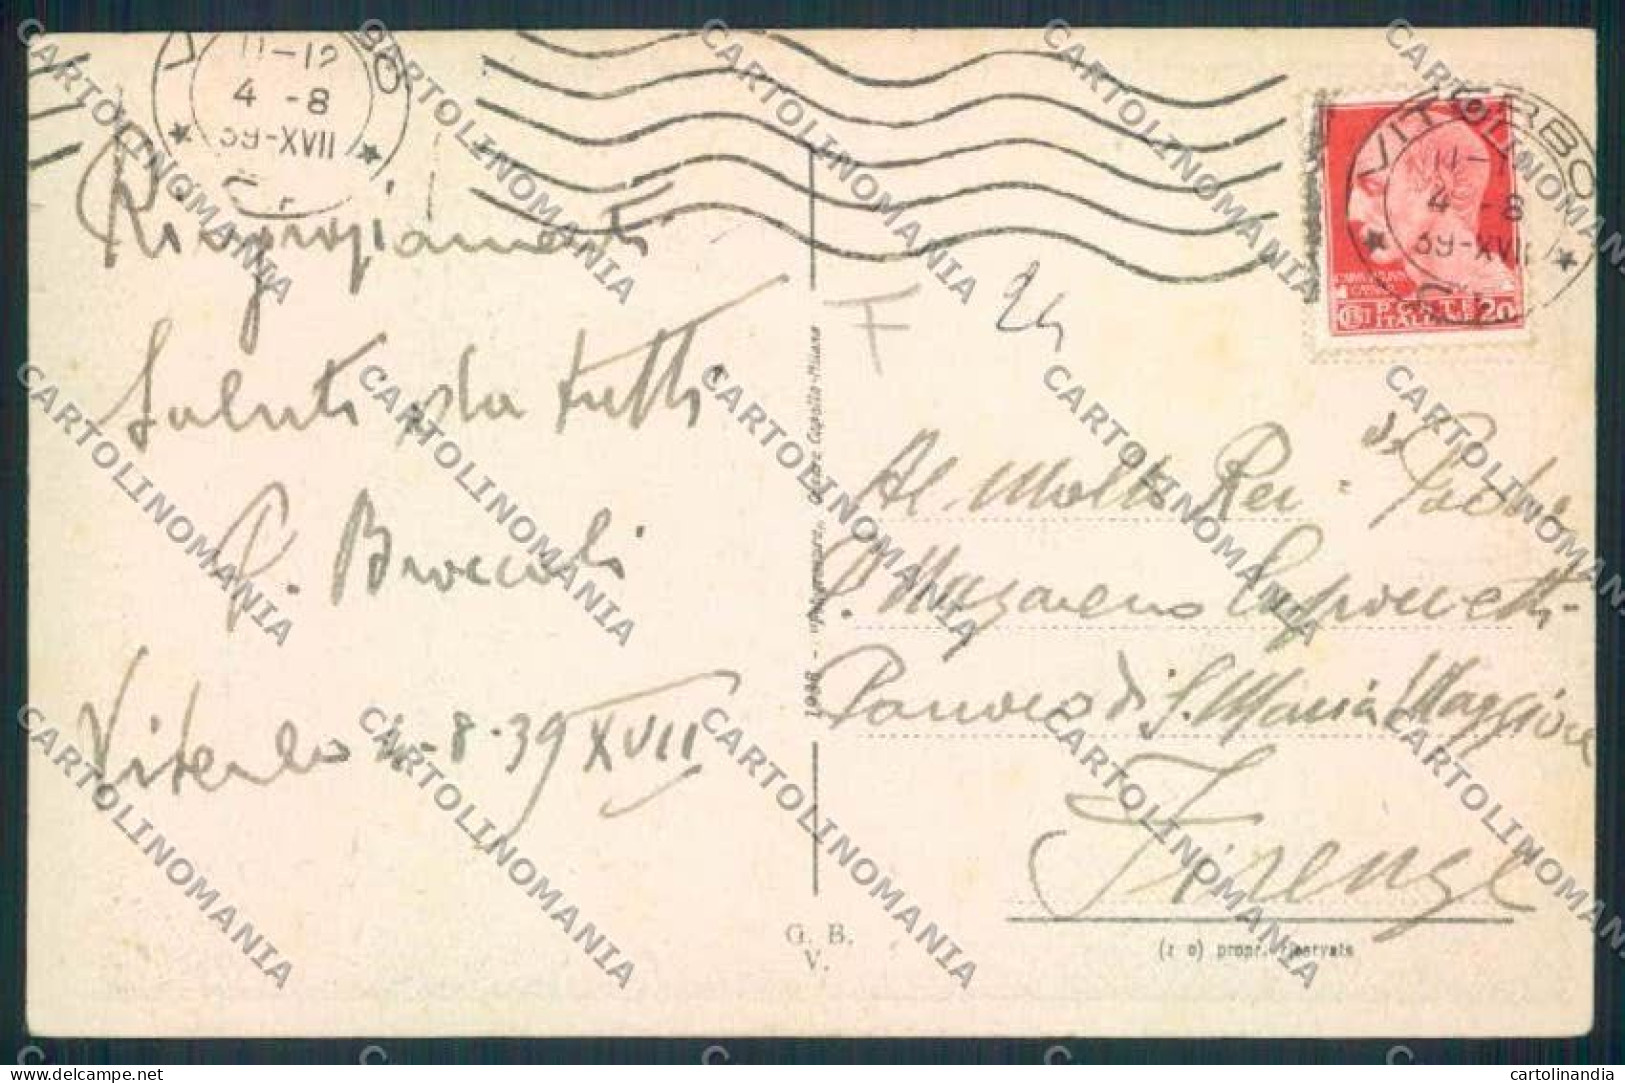 VITERBO
11-12
4 - 8
39-XVII
Ringraziamenti
Saluti da tutti
P. Broccoli
Viterbo 4-8-39 XVII
1938
G. B.
V.
F
24
VITERBO
4 - 8
39-XVII
POSTE
ITALIANE
20
Al Molto Rev. do Padre
P. Nazareno
Parroco di S. Maria Maggiore
Firenze
(r o) propr. riservata
CARTOLINOMANIA
cartolinandia